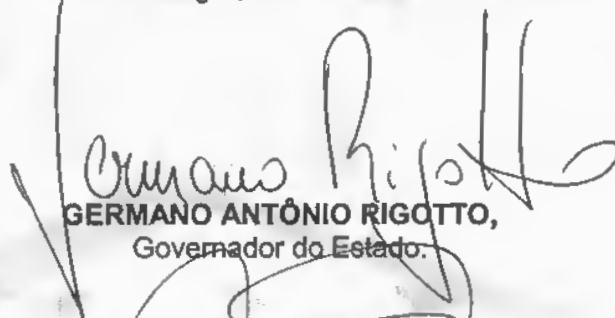 Germano Rigotto
GERMANO ANTÔNIO RIGOTTO,
Governador do Estado.